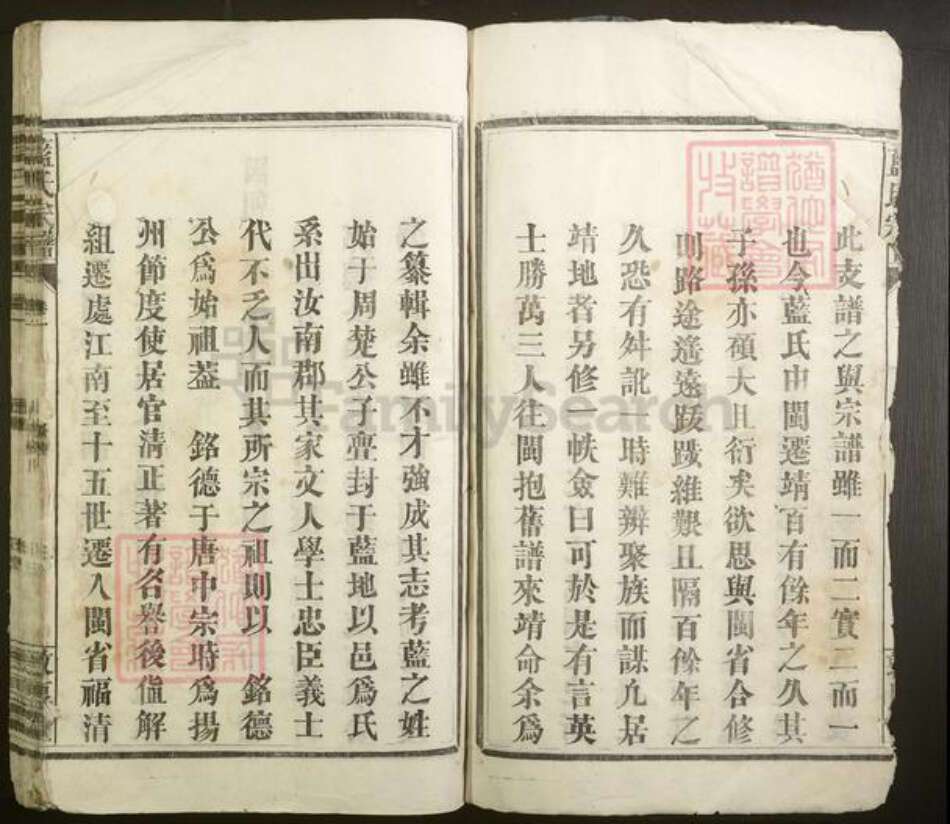 此支譜之與宗譜雖一而二實二而一
也今藍氏由閩遷靖百有餘年之久其
子孫亦碩大且衍矣欲思與閩省合修
則路途遙遠跋踄維艱且隔百餘年之
久恐有舛訛一時難辨聚族而謀凢居
靖地者另修一帙僉曰可於是有言英
士勝萬三人往閩抱舊譜來靖命余爲
之纂輯余雖不才強成其志考藍之姓
始于周楚公子亹封于藍地以邑爲氏
系出汝南郡其家文人學士忠臣義士
代不乏人而其所宗之祖則以 銘德
公爲始祖葢 銘德于唐中宗時爲揚
州節度使居官清正著有名譽後值解
組遷處江南至十五世遷入閩省福清
藍氏宗譜
FamilySearch